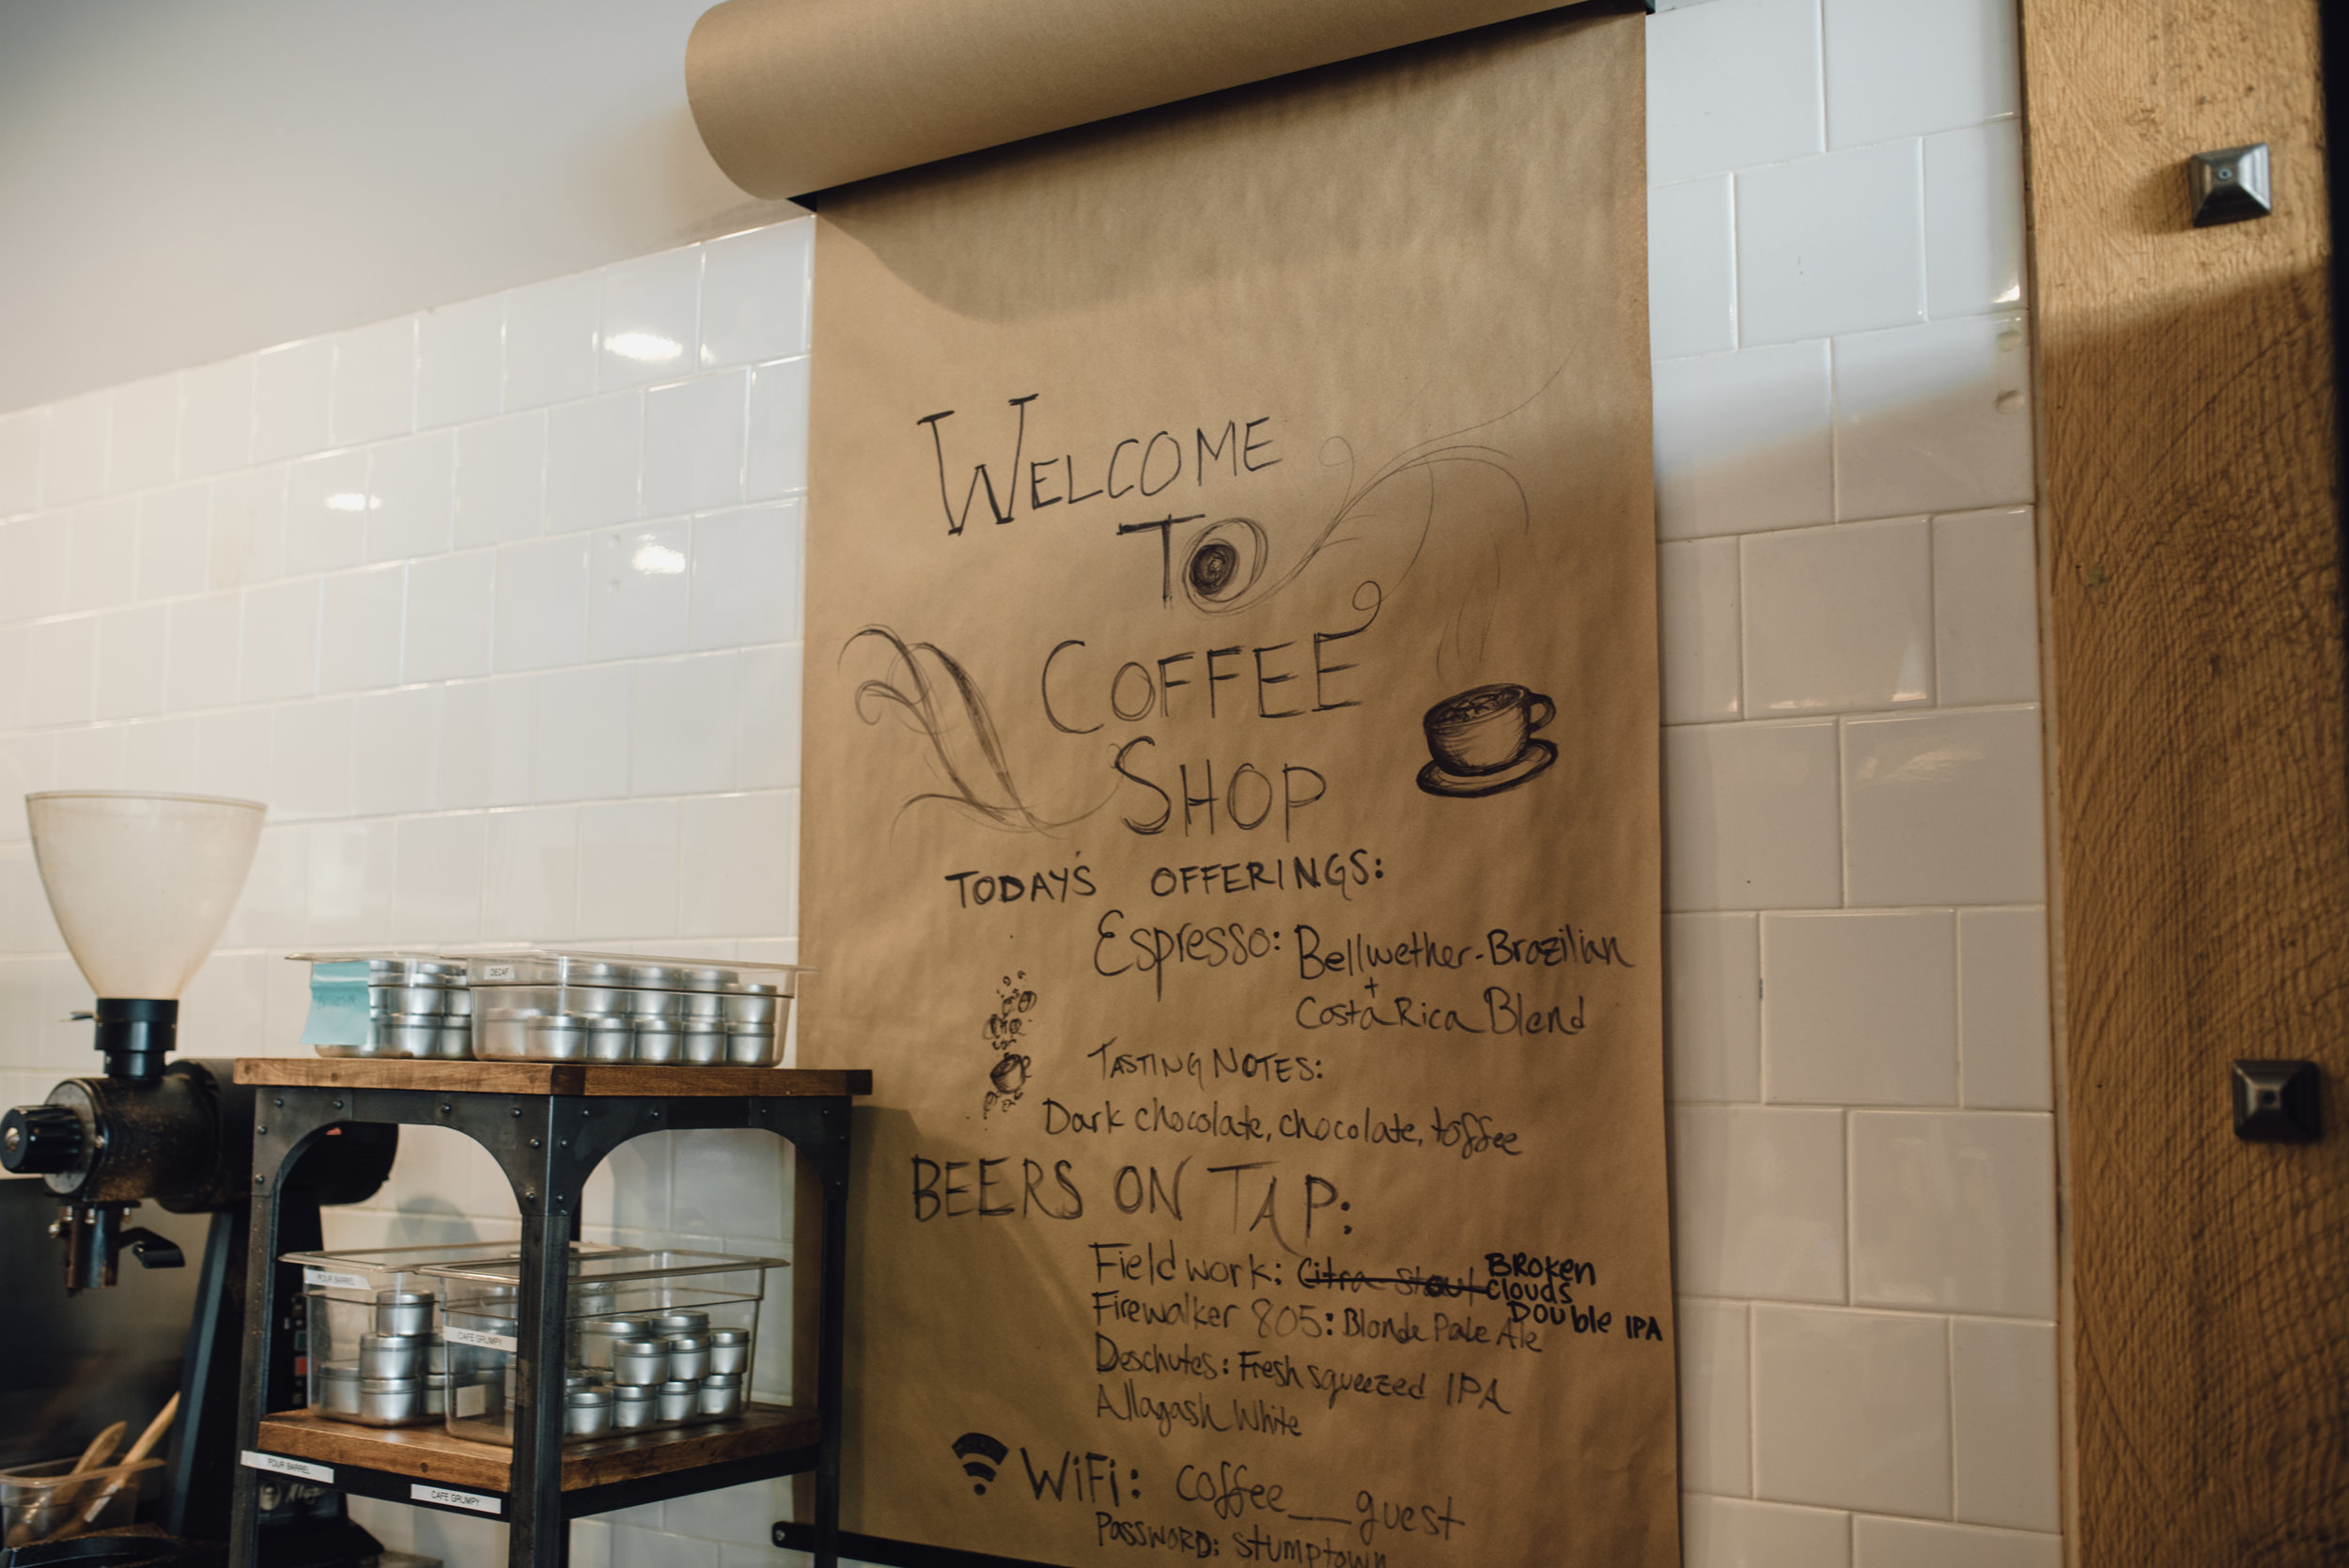 WELCOME
TO
COFFEE
SHOP
TODAY'S OFFERINGS:
Espresso: Bellwether-Brazilian
+
Costa Rica Blend
TASTING NOTES:
Dark chocolate, chocolate, toffee
BEERS ON TAP:
Fieldwork: Citra Stout BROKEN
Clouds
DOUBLE IPA
Firewalker 805: Blonde Pale Ale
Deschutes: Fresh squeezed IPA
Allagash White
WiFi: coffee__guest
PASSWORD: stumptown
DECAF
FOUR BARREL
CAFE GRUMPY
FOUR BARREL
CAFE GRUMPY